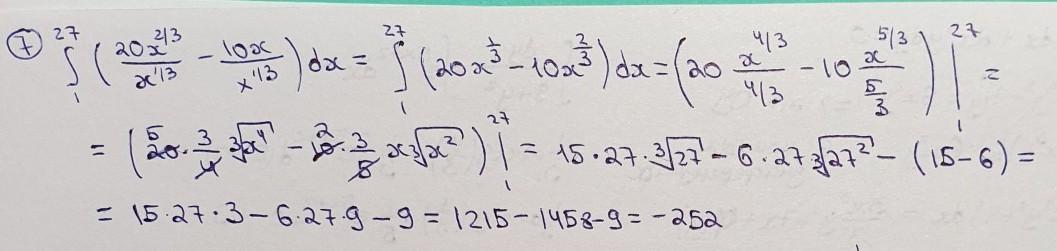 ⑦ ∫₁²⁷ (20x^{2/3}/x^{1/3} − 10x/x^{1/3}) dx = ∫₁²⁷ (20x^{1/3} − 10x^{2/3}) dx = (20 x^{4/3}/(4/3) − 10 x^{5/3}/(5/3)) |₁²⁷ =
= (20⁵ · 3/4 ∛x⁴ − 10² · 3/5 x∛x²) |₁²⁷ = 15·27·∛27 − 6·27∛27² − (15−6) =
= 15·27·3 − 6·27·9 − 9 = 1215 − 1458 − 9 = −252